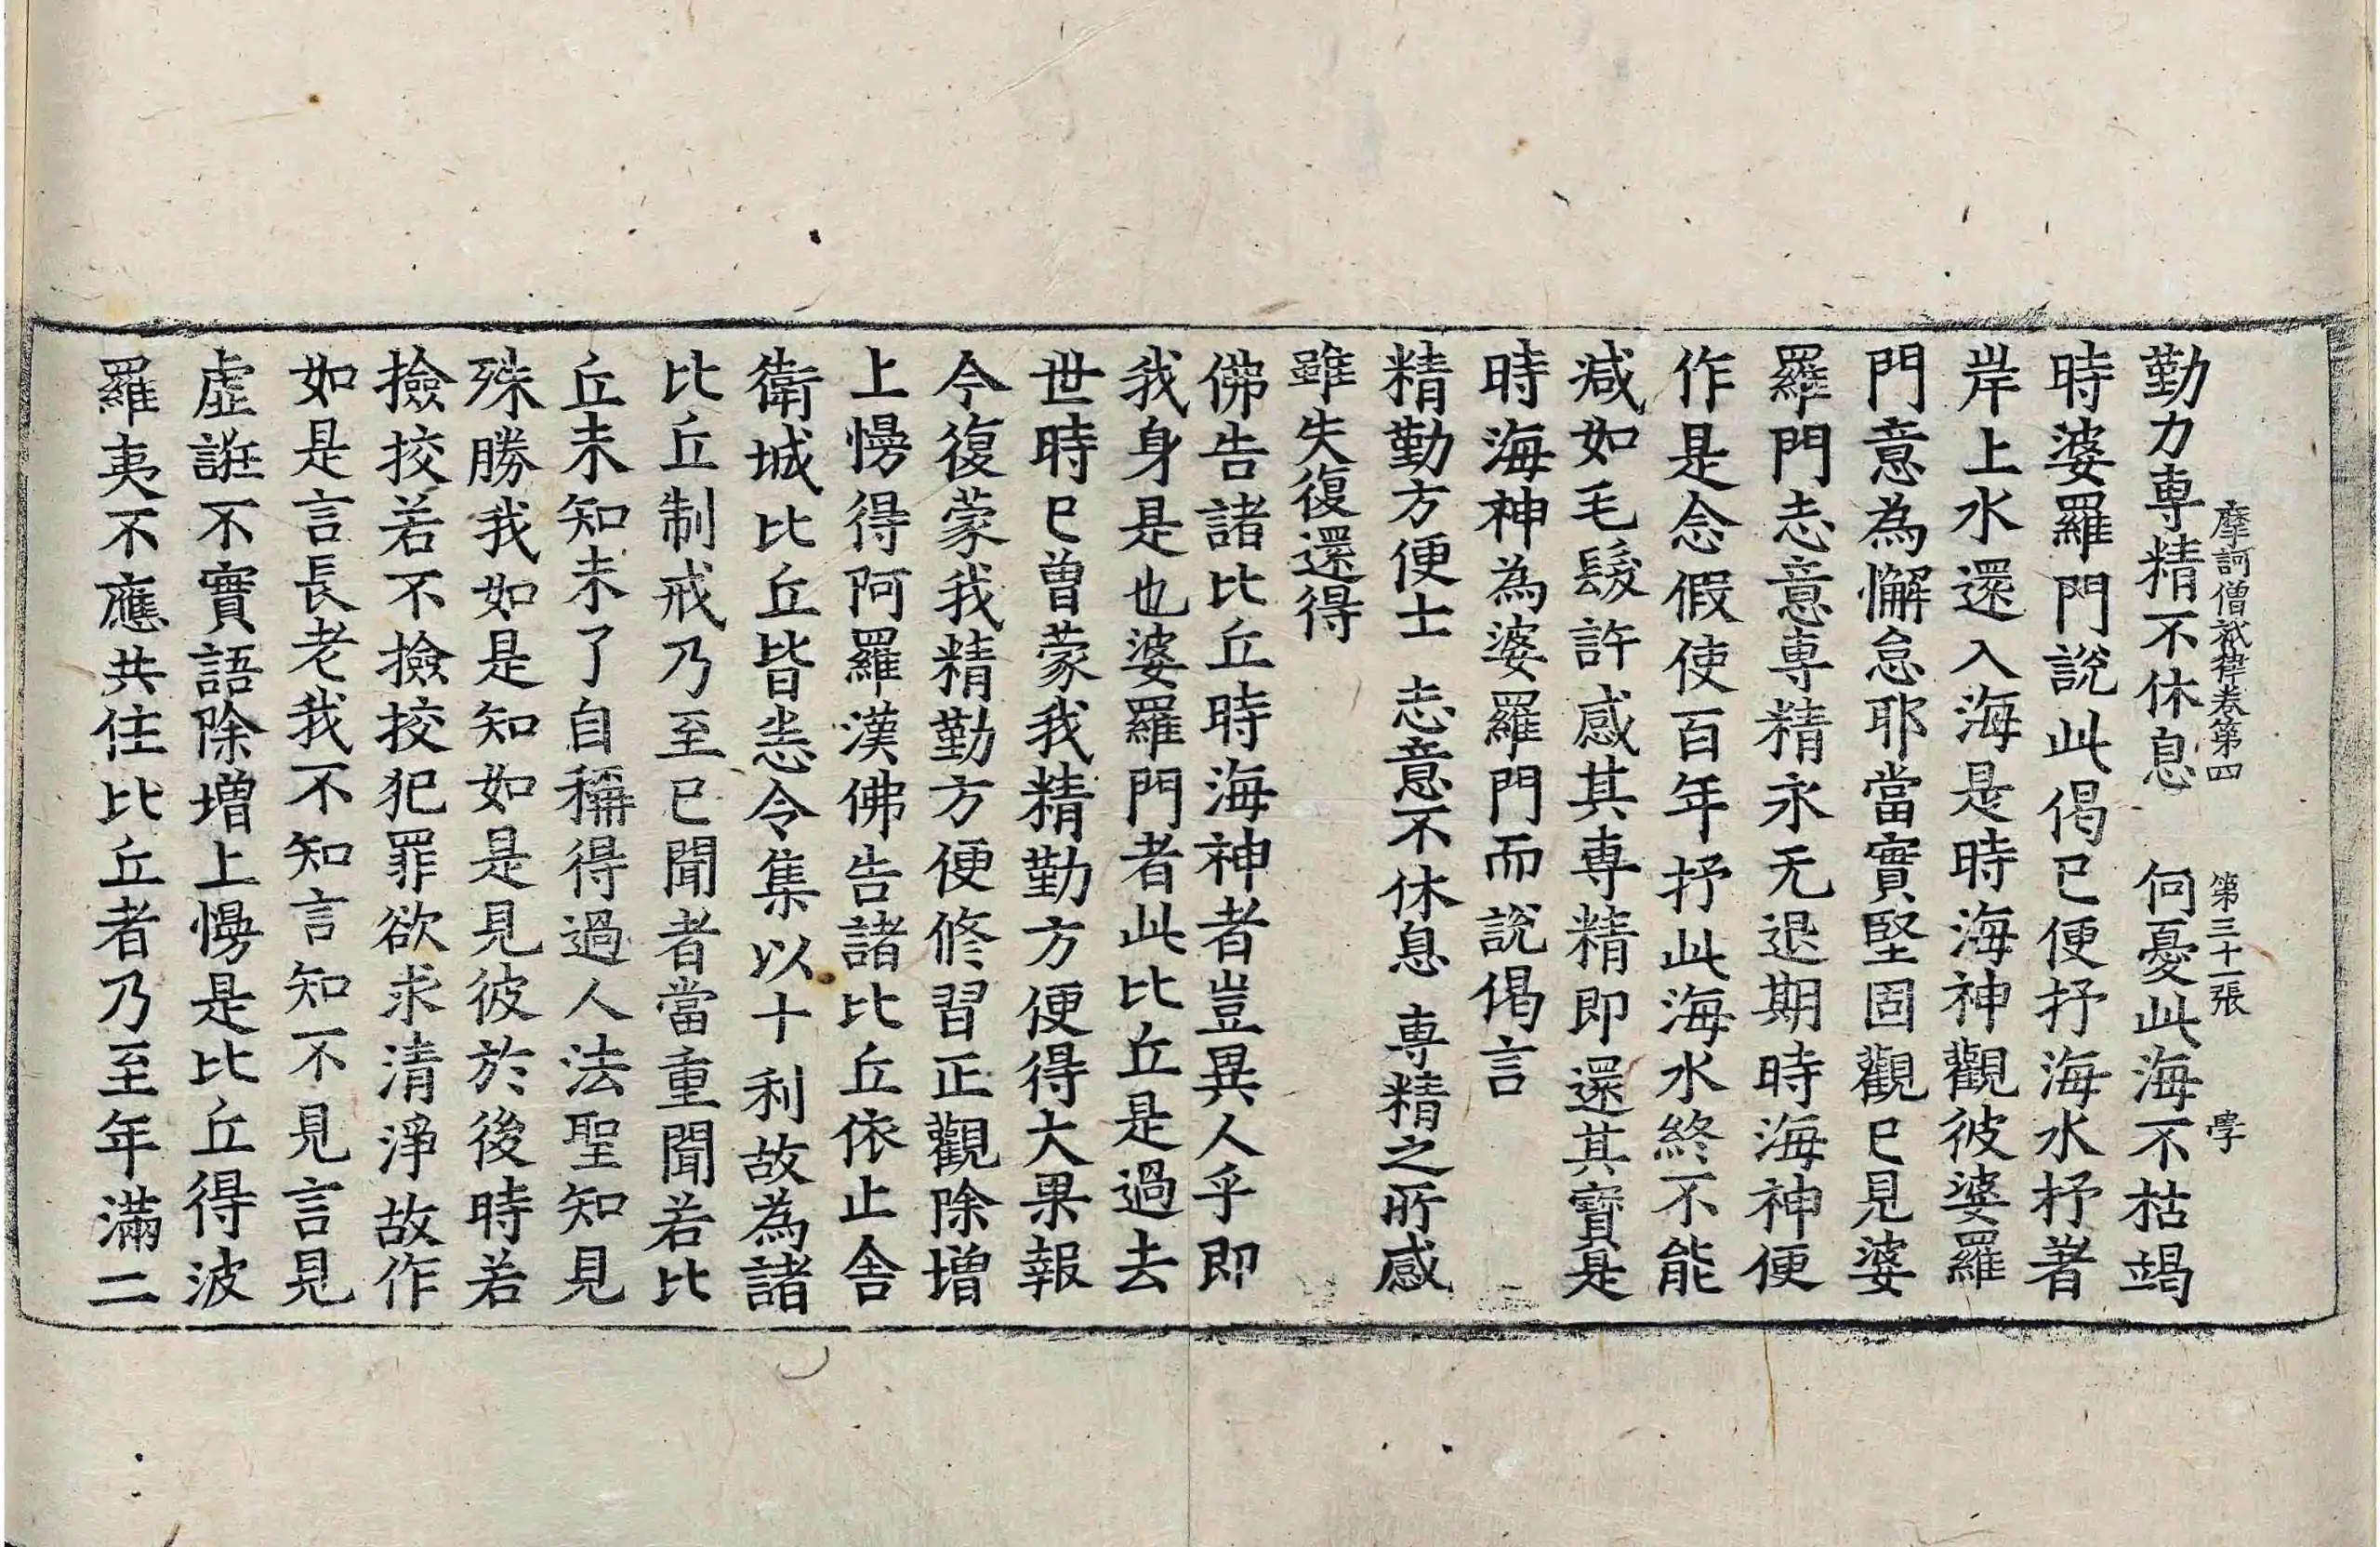 摩訶僧祇律卷第四 第三十一張 學
勤力專精不休息 何憂此海不枯竭
時婆羅門說此偈已便抒海水抒著
岸上水還入海是時海神觀彼婆羅
門意為懈怠耶當實堅固觀已見婆
羅門志意專精永无退期時海神便
作是念假使百年抒此海水終不能
減如毛髮許感其專精即還其寶是
時海神為婆羅門而說偈言
精勤方便士 志意不休息 專精之所感
雖失復還得
佛告諸比丘時海神者豈異人乎即
我身是也婆羅門者此比丘是過去
世時已曾蒙我精勤方便得大果報
今復蒙我精勤方便修習正觀除增
上慢得阿羅漢佛告諸比丘依止舍
衛城比丘皆悉令集以十利故為諸
比丘制戒乃至已聞者當重聞若比
丘未知未了自稱得過人法聖知見
殊勝我如是知如是見彼於後時若
撿挍若不撿挍犯罪欲求清淨故作
如是言長老我不知言知不見言見
虛誑不實語除增上慢是比丘得波
羅夷不應共住比丘者乃至年滿二